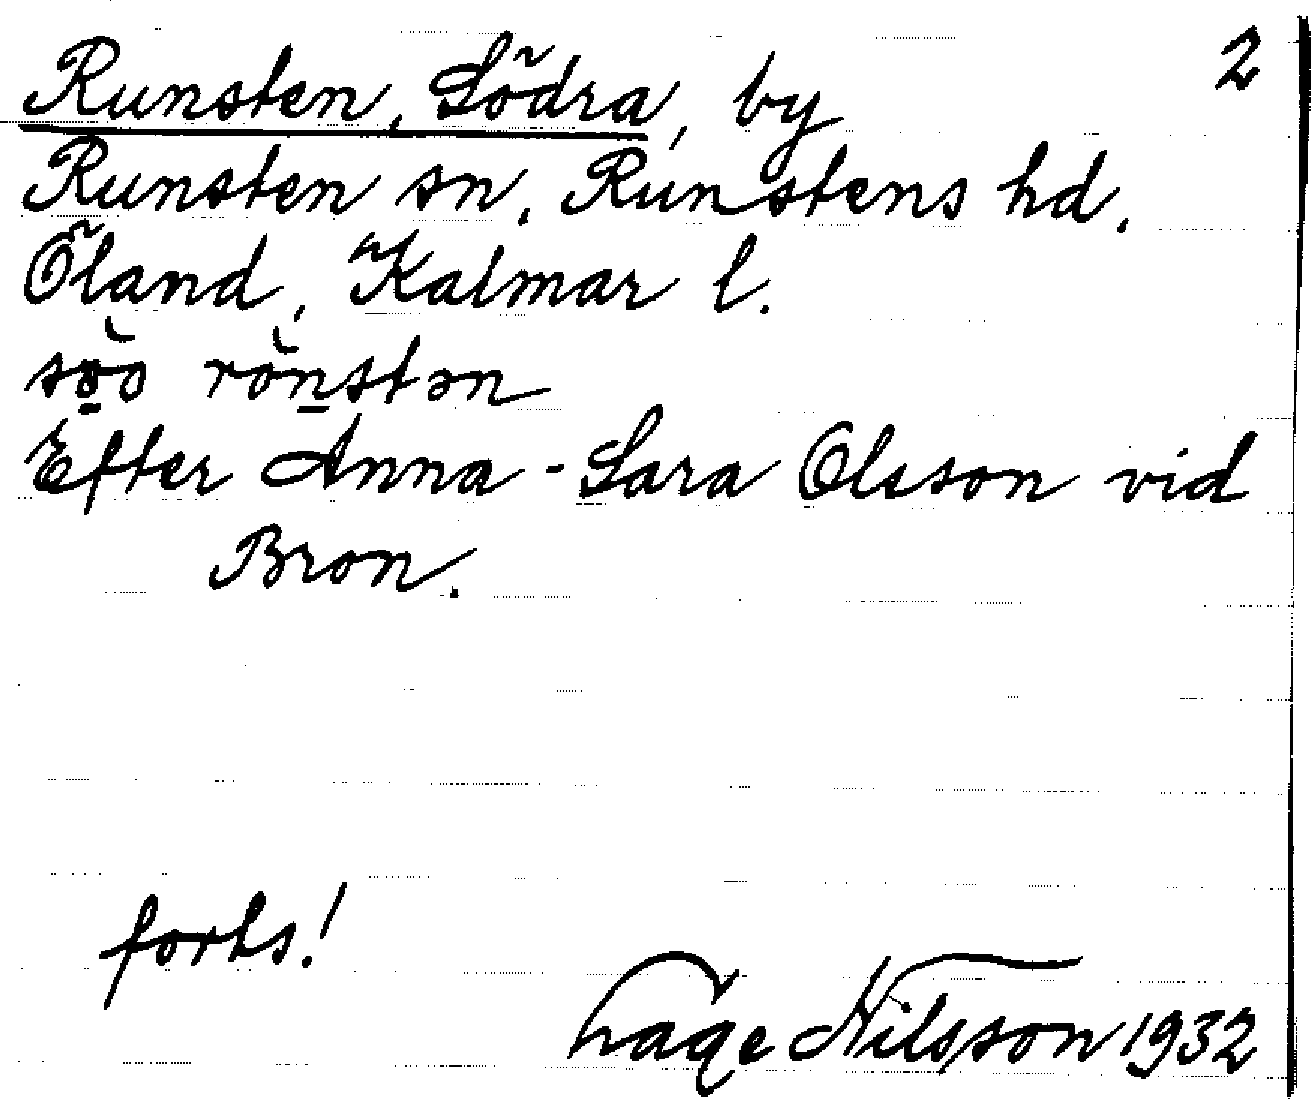 Runsten, Södra, by 2
Runsten sn, Runstens hd.
Öland, Kalmar l.
Efter Anna-Sara Olsson vid
Bron.
forts!
Hage Nilsson 1932